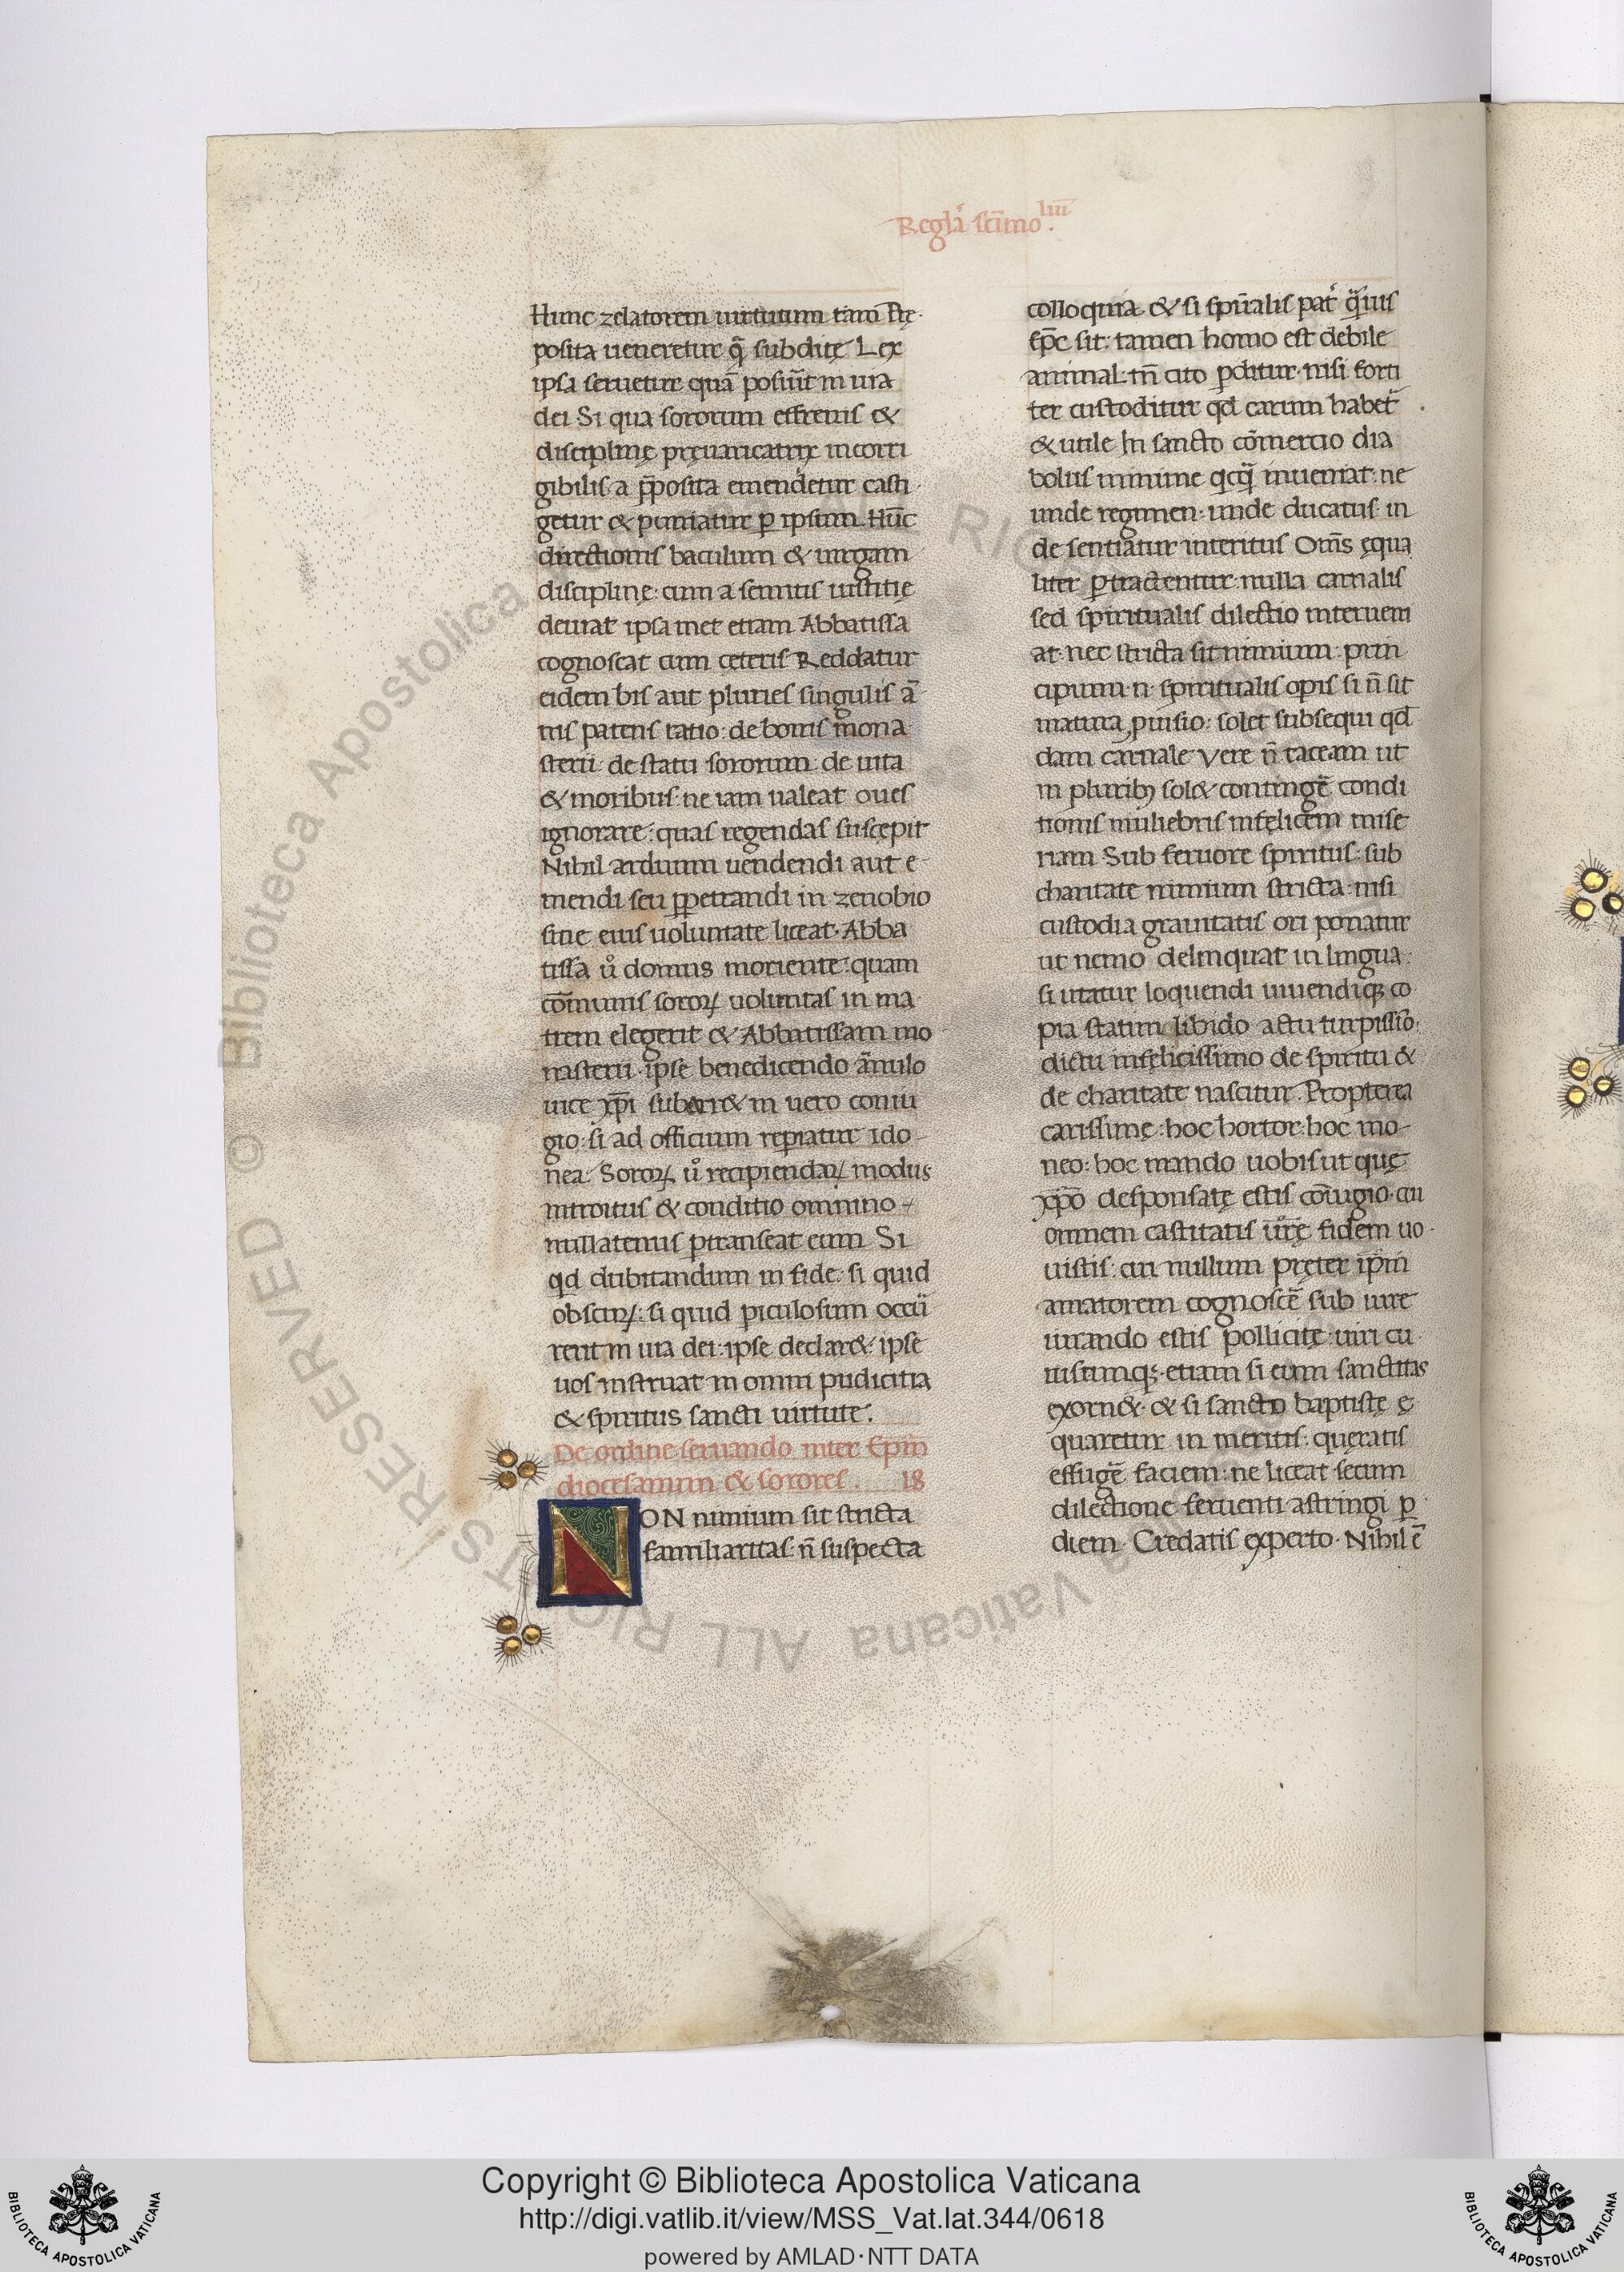 Regla͛ sci᷑mo liii.
Hunc zelatorem uirtutum tam Pre
posita ueneretur q̄ subditę Lex
ipsa seruetur quā posuit͛ in uia
dei Si qua sororum effrenis &
disciplinę pręuaricatrix incorri
gibilis a p̄posita emendetur casti
getur & puniatur ꝑ ipsum Hūc
directionis baculum & uirgam
disciplinę: cum a semitis iustitię
deuiat ipsa met etiam Abbatissa
cognoscat cum cęteris Reddatur
eidem bis aut pluries singulis ā
nis patens ratio: de bonis mona
sterii de statu sororum: de uita
& moribus: ne iam ualeat oues
ignorare: quas regendas suscępit
Nihil arduum uendendi aut e-
mendi seu ꝑpetrandi in zenobio
sine eius uoluntate liceat. Abba
tissa u͛o domus moriente: quam
cōmunis soroꝝ uoluntas in ma
trem elegerit & Abbatissam mo
nasterii ipse benedicendo ānulo
uice xp̄i subarr& in uero coniu
gio: si ad officium reperiatur ido-
nea. Soroꝝ u͛o recipiendaꝝ modus
introitus & conditio omnino-
nullatenus ꝑtranseat eum Si
qd dubitandum in fide: si quid
obscuꝝ: si quid ꝑiculosum occū
rerit in uia dei: ipse declar&: ipse
uos instruat in omni pudicitia
& spiritus sancti uirtute.
De ordine seruando inter Ep̄m
diocesanum & sorores. 18
NON nimium sit stricta
familiaritas: n̄ suspecta
colloquia & si spūalis pat͛ q̄uis
ep̄c sit: tamen homo est debile
animal: tn̄ cito ꝑditur nisi forti
ter custoditur qd carum habet͛
& utile In sancto cōmercio dia
bolus minime qicq̄ inueniat: ne
unde regimen: unde ducatus: in
de sentiatur interitus Om̄s ęqua
liter ꝑtractentur: nulla carnalis
sed spiritualis dilectio interueni
at: nec stricta sit nimium: prin
cipium n̄ spiritualis opis si n̄ sit
matura ꝓuisio: solet subsequi qd
dam carnale Vere n̄ taceam ut
in pluribꝰ sol& contingē condi
tionis muliebris infęlicem mise
riam Sub feruore spiritus: sub
charitate nimium stricta nisi
custodia grauitatis ori ponatur
ut nemo delinquat in lingua:
si utatur loquendi uiuendiqꝫ co
pia statim libido actu turpissīo:
dictu infęlicissimo de spiritu &
de charitate nascitur. Propterea
carissimę: hoc hortor: hoc mo-
neo: hoc mando uobis ut quę
xp̄o desponsatę estis cōiugio cui
omnem castitatis ur̄ę fidem uo
uistis: cui nullum pręter ip̄m
amatorem cognoscē sub iure
iurando estis pollicitę: uiri cu
iuscunqꝫ etiam si eum sanctitas
exorn& & si sancto baptistę ę
quaretur in meritis: quęratis
effugē faciem: ne liceat secum
dilectione feruenti astringi ꝑ
diem Credatis experto Nihil ē
Copyright © Biblioteca Apostolica Vaticana
http://digi.vatlib.it/view/MSS_Vat.lat.344/0618
powered by AMLAD·NTT DATA
BIBLIOTECA APOSTOLICA VATICANA
BIBLIOTECA APOSTOLICA VATICANA
© Biblioteca Apostolica Vaticana ALL RIGHTS RESERVED